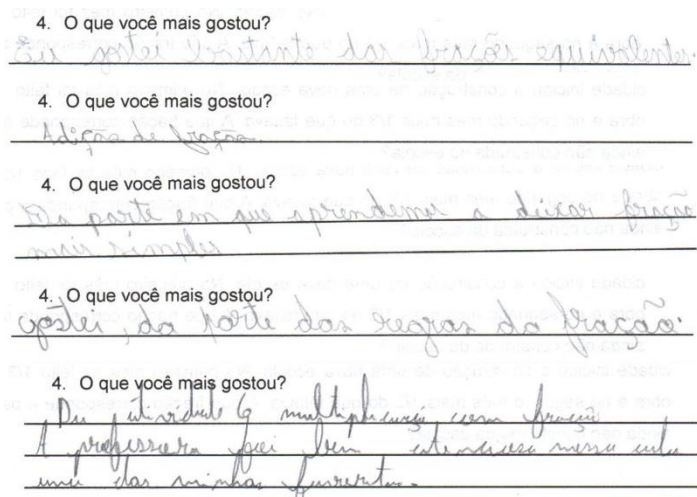 4. O que você mais gostou?
Eu gostei bastante das frações equivalentes.
4. O que você mais gostou?
Adição de fração
4. O que você mais gostou?
Da parte em que aprendemos a deixar fração
mais simples
4. O que você mais gostou?
gostei, da parte das regras da fração.
4. O que você mais gostou?
Da atividade 6 multiplicação com fração.
A professora foi bem atenciosa nessa aula
uma das minhas favoritas.